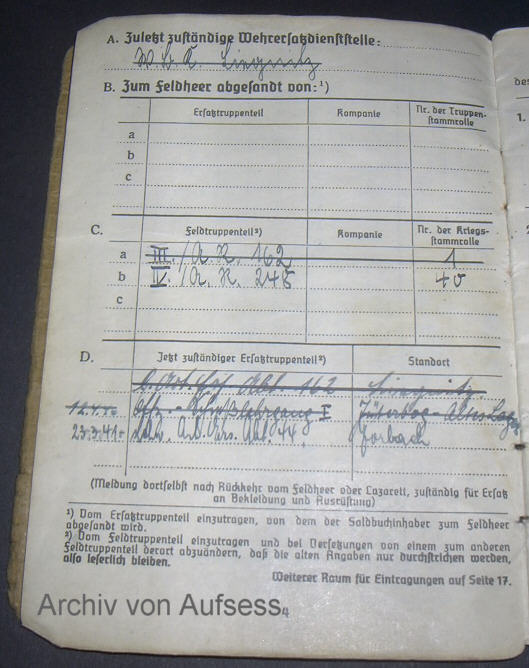 A. Zuletzt zuständige Wehrersatzdienststelle:
W. B. K. Liegnitz
B. Zum Feldheer abgesandt von:¹)
Ersatztruppenteil Kompanie Nr. der Truppen-
stammrolle
a
b
c
C. Feldtruppenteil²) Kompanie Nr. der Kriegs-
stammrolle
a III./A.R. 162 1
b IV./A.R. 248 40
c
D. Jetzt zuständiger Ersatztruppenteil²) Standort
Abt. 162 Liegnitz
Jüterbog-Altes Lager
23.3.41- Art. Ers. Abt. 44 Forbach
(Meldung dortselbst nach Rückkehr vom Feldheer oder Lazarett, zuständig für Ersatz
an Bekleidung und Ausrüstung)
¹) Vom Ersatztruppenteil einzutragen, von dem der Soldbuchinhaber zum Feldheer
abgesandt wird.
²) Vom Feldtruppenteil einzutragen und bei Versetzungen von einem zum anderen
Feldtruppenteil derart abzuändern, daß die alten Angaben nur durchstrichen werden,
also leserlich bleiben.
Weiterer Raum für Eintragungen auf Seite 17.
Archiv von Aufsess
4
1.